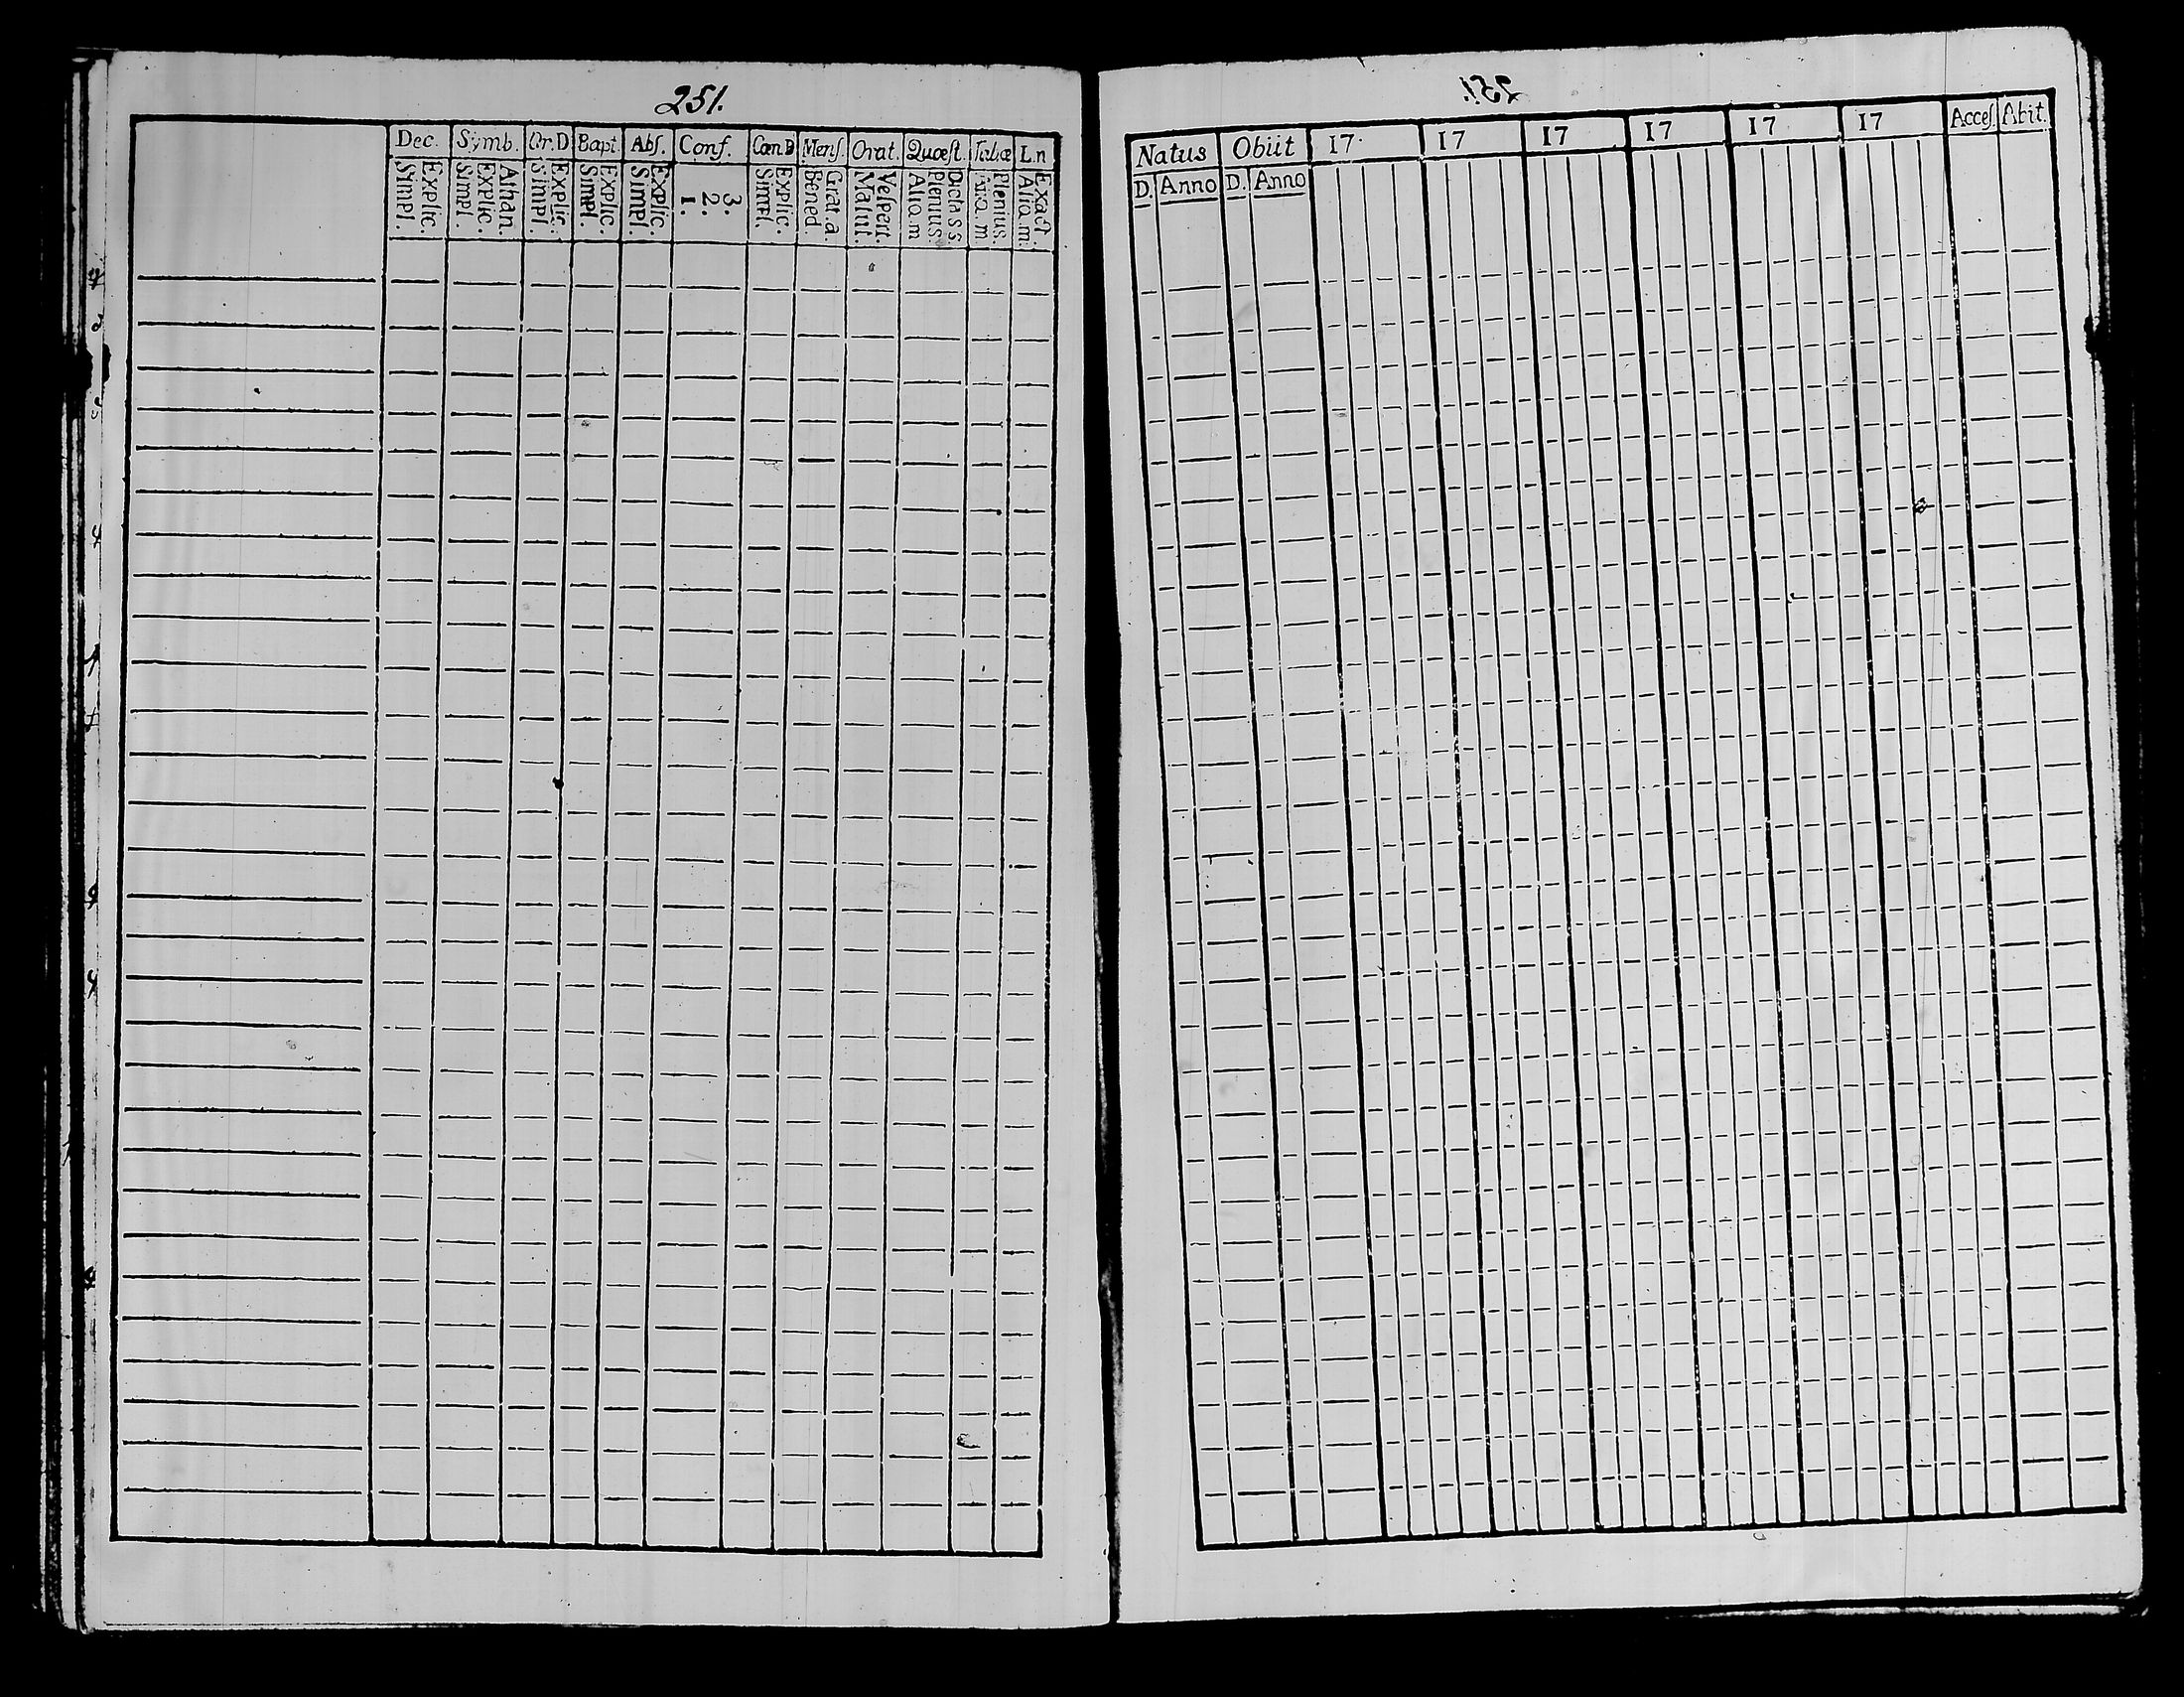 251.
Dec. Symb. Or.D Bapt. Abſ. Conf. Cœn D Menſ. Orat. Quœſt. Tabœ L.n
Explic. Simpl. Athan. Explic. Simpl. Explic. Simpl. Explic. Simpl. Explic. Simpl. 3. 2. 1. Explic. Simpl. Grat. a. Bened Veſpert. Matut. Dicta s s Plenius Alia.m Plenius. Alia.m Exact. Alia.m.
Natus Obiit 17. 17 17 17 17 17 Acceſ. Abit.
D. Anno D. Anno